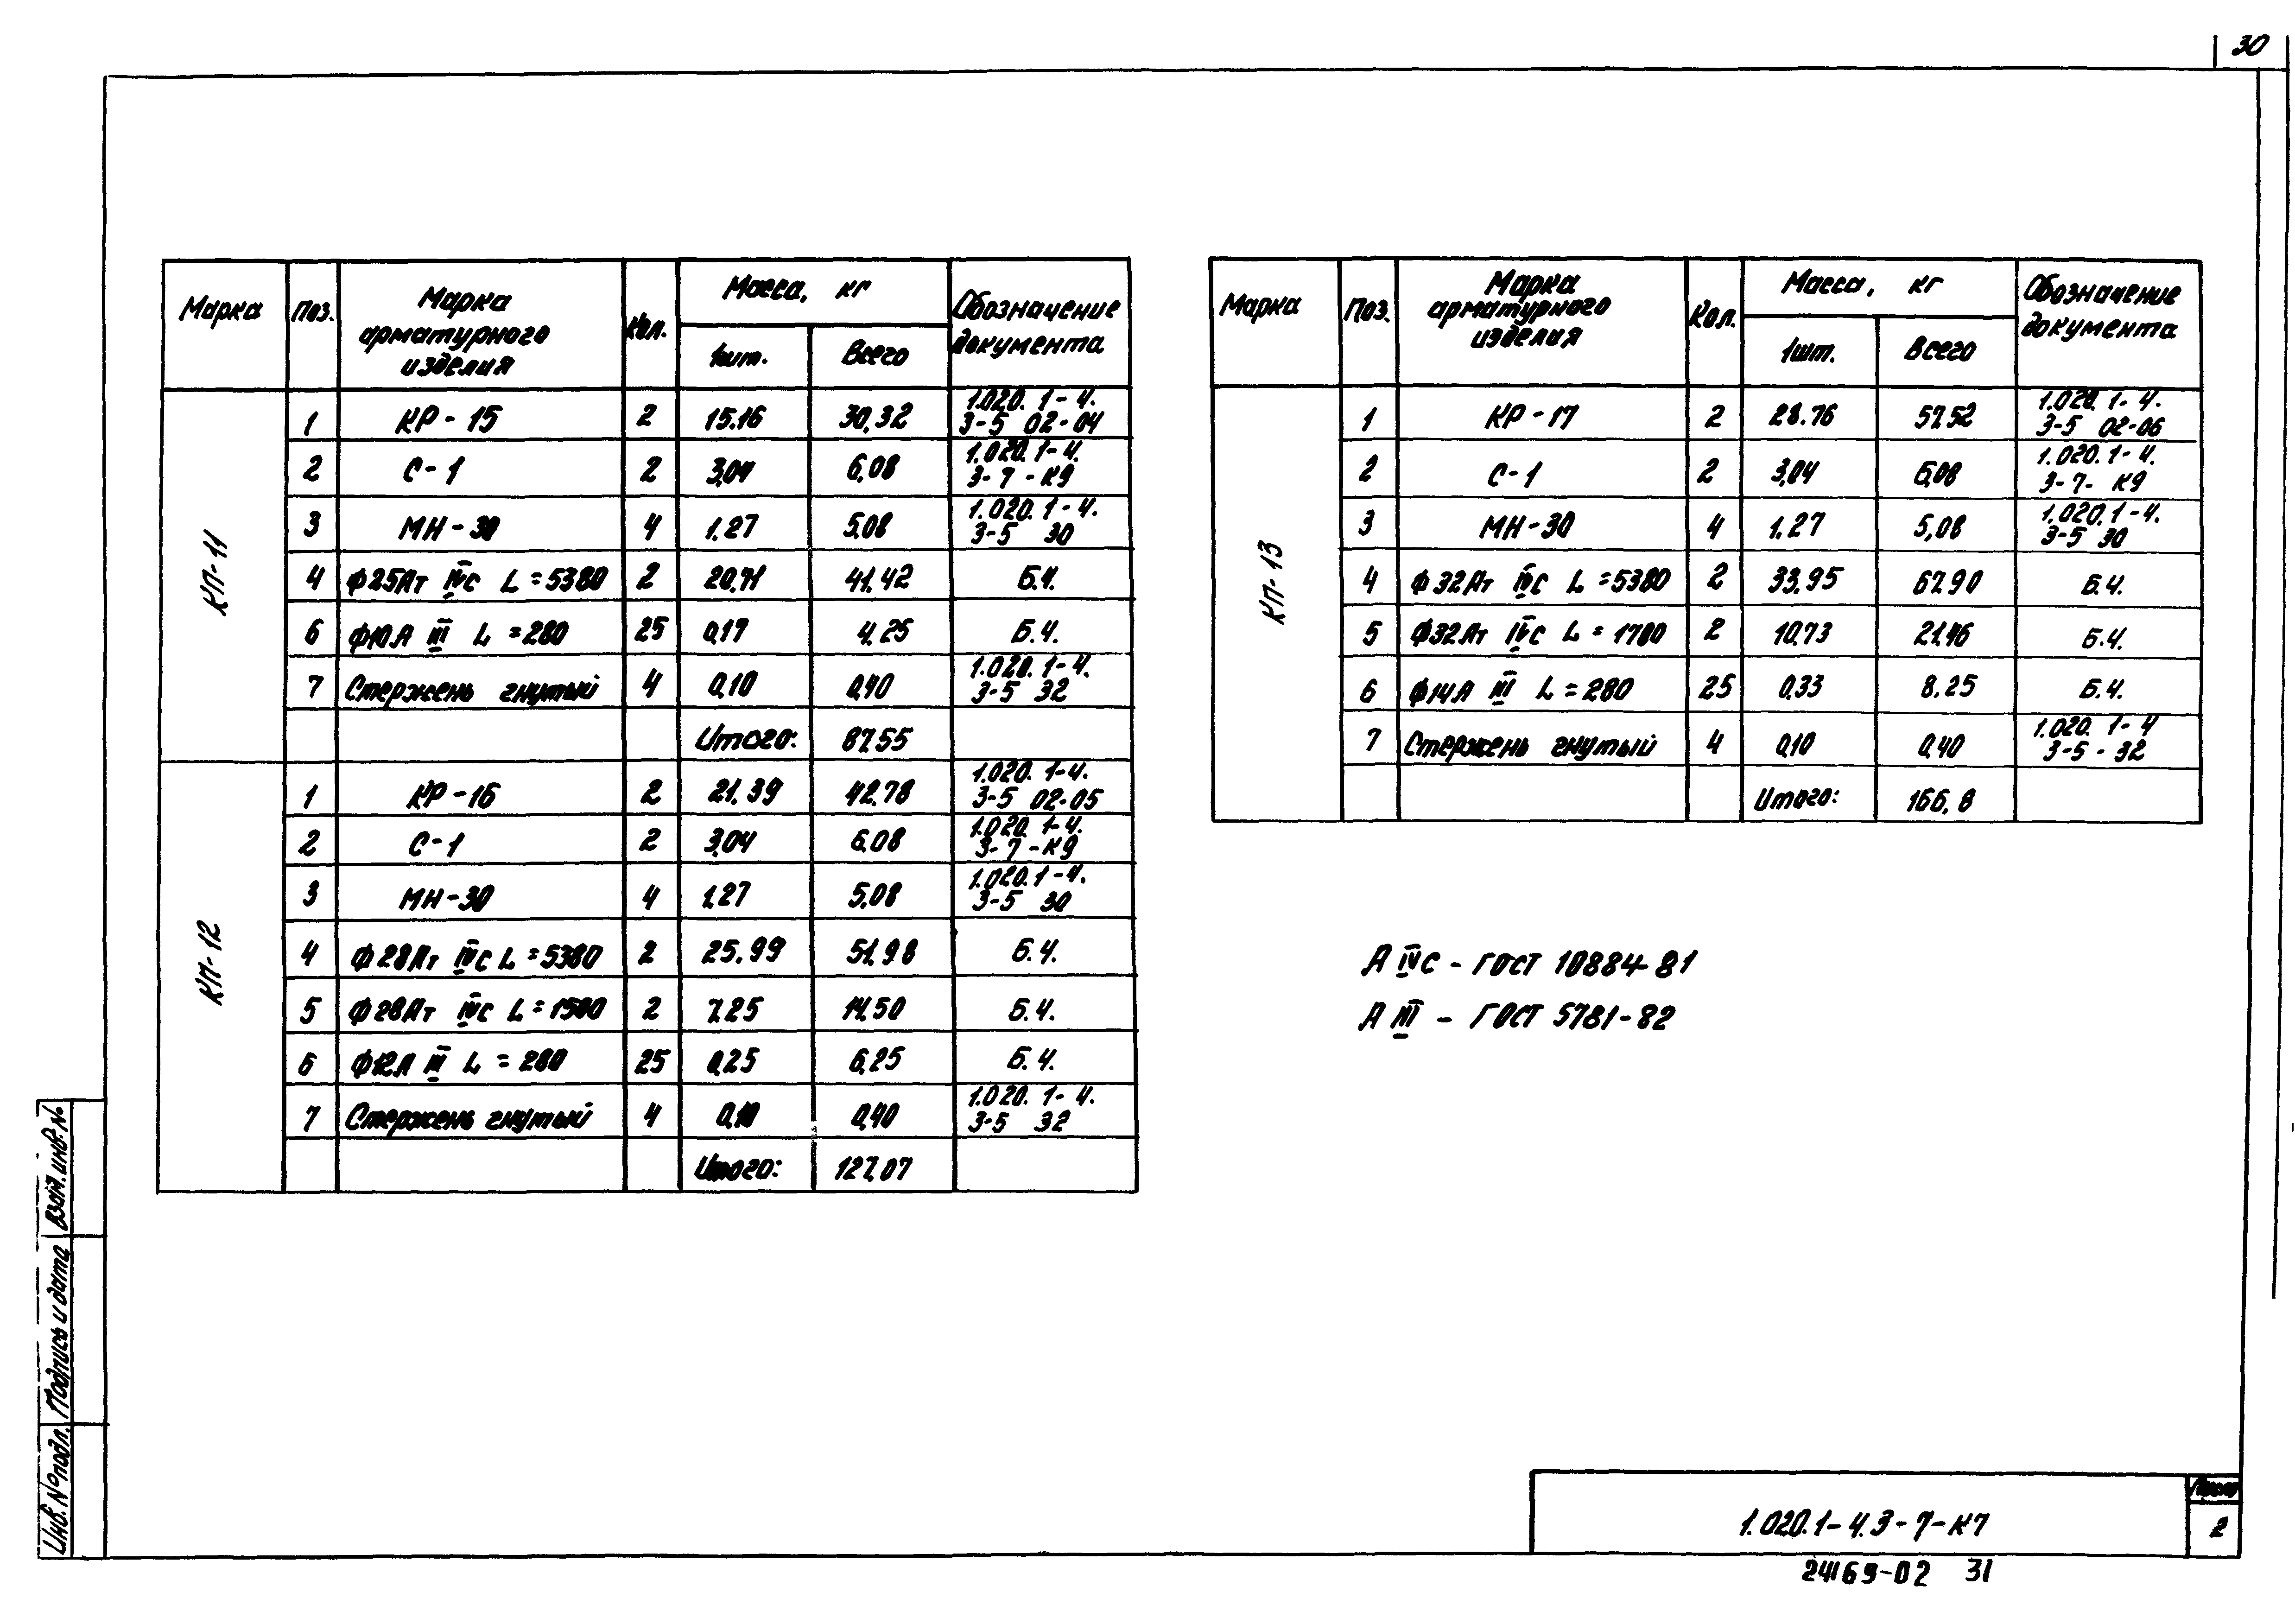 30
Марка Поз. Марка арматурного изделия Кол. Масса, кг Обозначение документа
1шт. Всего
КП-11
1 КР-15 2 15.16 30,32 1.020.1-4. 3-5 02-04
2 С-1 2 3,04 6,08 1.020.1-4. 3-7-К9
3 МН-30 4 1.27 5,08 1.020.1-4. 3-5 30
4 Ф25Ат IVС L=5380 2 20,71 41.42 Б.Ч.
6 Ф10А III L=280 25 0,17 4.25 Б.Ч.
7 Стержень гнутый 4 0,10 0,40 1.020.1-4. 3-5 32
Итого: 87,55
КП-12
1 КР-16 2 21.39 42.78 1.020.1-4. 3-5 02-05
2 С-1 2 3,04 6.08 1.020.1-4. 3-7-К9
3 МН-30 4 1.27 5,08 1.020.1-4. 3-5 30
4 Ф28Ат IVС L=5380 2 25.99 51.98 Б.Ч.
5 Ф28Ат IVС L=1500 2 7,25 14.50 Б.Ч.
6 Ф12А III L=280 25 0,25 6,25 Б.Ч.
7 Стержень гнутый 4 0,10 0,40 1.020.1-4. 3-5 32
Итого: 127,07
Марка Поз. Марка арматурного изделия Кол. Масса, кг Обозначение документа
1шт. Всего
КП-13
1 КР-17 2 28.76 57,52 1.020.1-4. 3-5 02-06
2 С-1 2 3,04 6,08 1.020.1-4. 3-7-К9
3 МН-30 4 1.27 5,08 1.020.1-4. 3-5 30
4 Ф32Ат IVС L=5380 2 33,95 67,90 Б.Ч.
5 Ф32Ат IVС L=1700 2 10,73 21,46 Б.Ч.
6 Ф14А III L=280 25 0.33 8.25 Б.Ч.
7 Стержень гнутый 4 0,10 0,40 1.020.1-4 3-5-32
Итого: 166,8
А IVС - ГОСТ 10884-81
А III - ГОСТ 5781-82
Инв. № подл. Подпись и дата Взам. инв. №
1.020.1-4.3-7-К7
Лист
2
24169-02 31